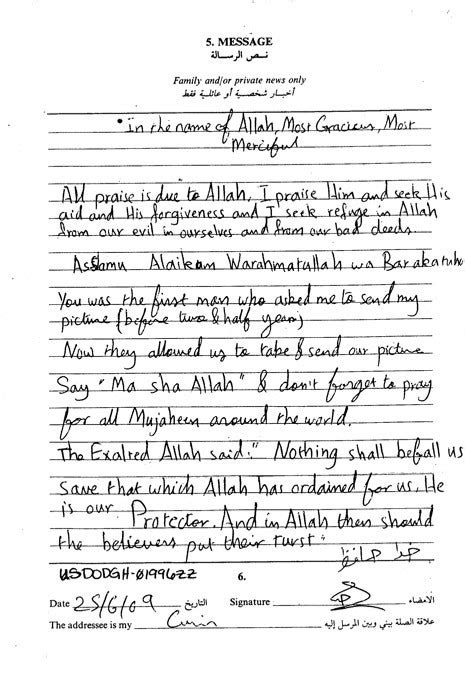 5. MESSAGE
نص الرسالة
Family and/or private news only
أخبار شخصية أو عائلية فقط
"In the name of Allah, Most Gracious, Most
Merciful
All praise is due to Allah, I praise Him and seek His
aid and His forgiveness and I seek refuge in Allah
from our evil in ourselves and from our bad deeds.
Assamu Alaikum Warahmatullah wa Barakatuho
You was the first man who asked me to send my
picture (before two & half year)
Now they allowed us to take & send our picture
Say "Ma sha Allah" & don't forget to pray
for all Mujaheen around the world.
The Exalted Allah said: "Nothing shall befall us
save that which Allah has ordained for us, He
is our Protector. And in Allah then should
the believers put their turst"
خدا حافظ
USDODGH-019962Z 6.
Date 25/6/09 التاريخ Signature الامضاء
The addressee is my علاقة الصلة بيني وبين المرسل إليه